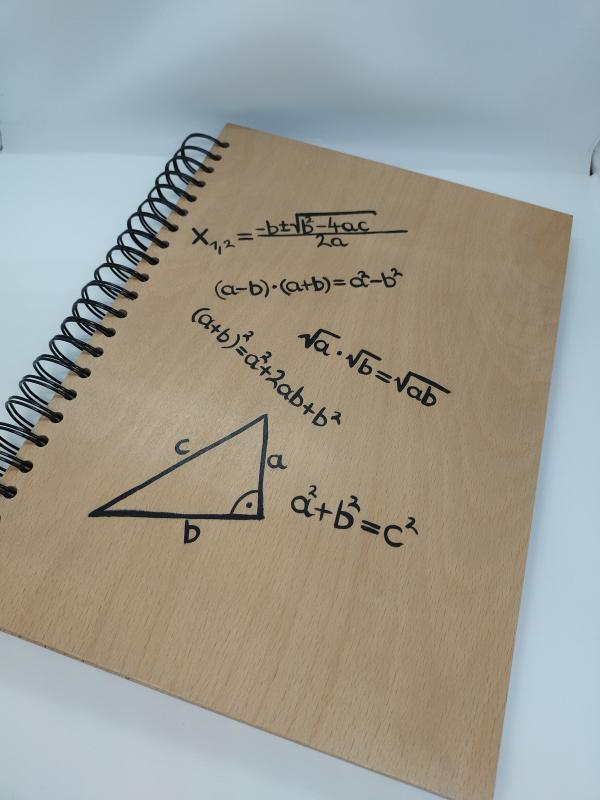 x₁,₂ = (-b±√(b²-4ac))/(2a)
(a-b)·(a+b)=a²-b²
(a+b)²=a²+2ab+b²
√a·√b=√ab
c
a
b
a²+b²=c²